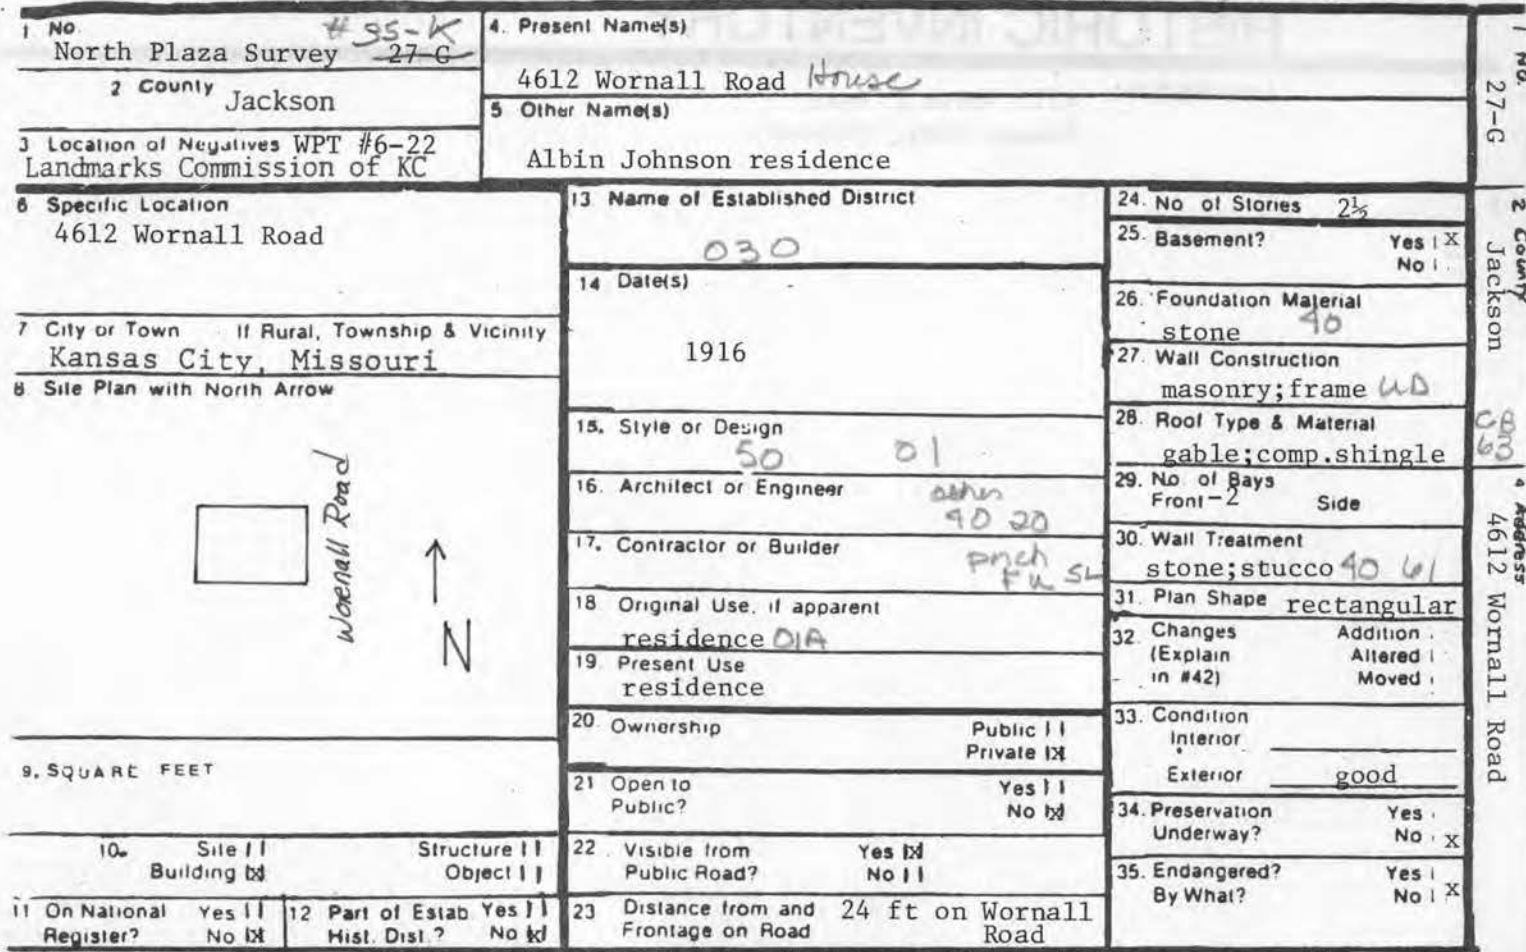 1 No. #95-K
North Plaza Survey 27-G
2 County Jackson
3 Location of Negatives WPT #6-22
Landmarks Commission of KC
4. Present Name(s)
4612 Wornall Road House
5 Other Name(s)
Albin Johnson residence
6 Specific Location
4612 Wornall Road
7 City or Town If Rural, Township & Vicinity
Kansas City, Missouri
8. Site Plan with North Arrow
Wornall Road
N
9. SQUARE FEET
10. Site Structure
Building X Object
11 On National Yes
Register? No X
12 Part of Estab. Yes
Hist. Dist.? No X
13 Name of Established District
030
14 Date(s)
1916
15. Style or Design
50 01
16. Architect or Engineer
other
40 20
17. Contractor or Builder
porch
18 Original Use, if apparent
residence 01A
19. Present Use
residence
20 Ownership Public
Private X
21 Open to Yes
Public? No X
22 Visible from Yes X
Public Road? No
23 Distance from and 24 ft on Wornall
Frontage on Road Road
24. No of Stories 2½
25. Basement? Yes X
No
26. Foundation Material
stone 40
27. Wall Construction
masonry;frame UD
28. Roof Type & Material
gable;comp.shingle
29. No of Bays
Front-2 Side
30. Wall Treatment
stone;stucco 40 61
31. Plan Shape rectangular
32. Changes Addition
(Explain Altered
in #42) Moved
33. Condition
Interior
Exterior good
34. Preservation Yes
Underway? No X
35. Endangered? Yes
By What? No X
1 No.
27-G
2 County
Jackson
63
4 Address
4612 Wornall Road